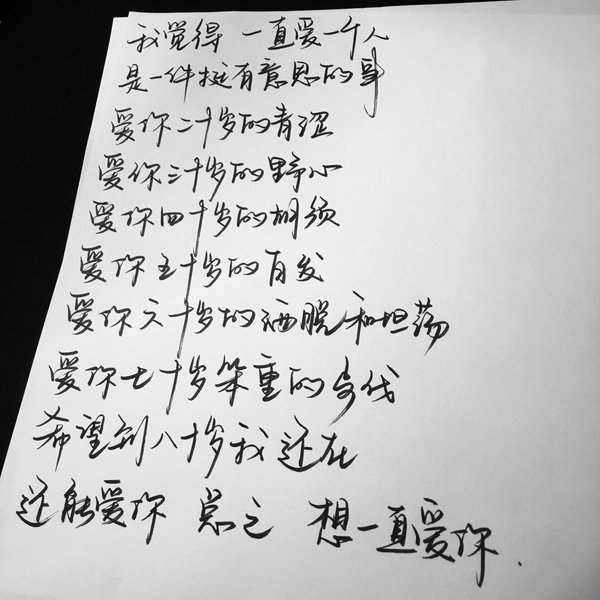 我觉得 一直爱一个人
是一件挺有意思的事
爱你二十岁的青涩
爱你三十岁的野心
爱你四十岁的胡须
爱你五十岁的白发
爱你六十岁的洒脱和坦荡
爱你七十岁笨重的步伐
希望到八十岁我还在
还能爱你 总之 想一直爱你.